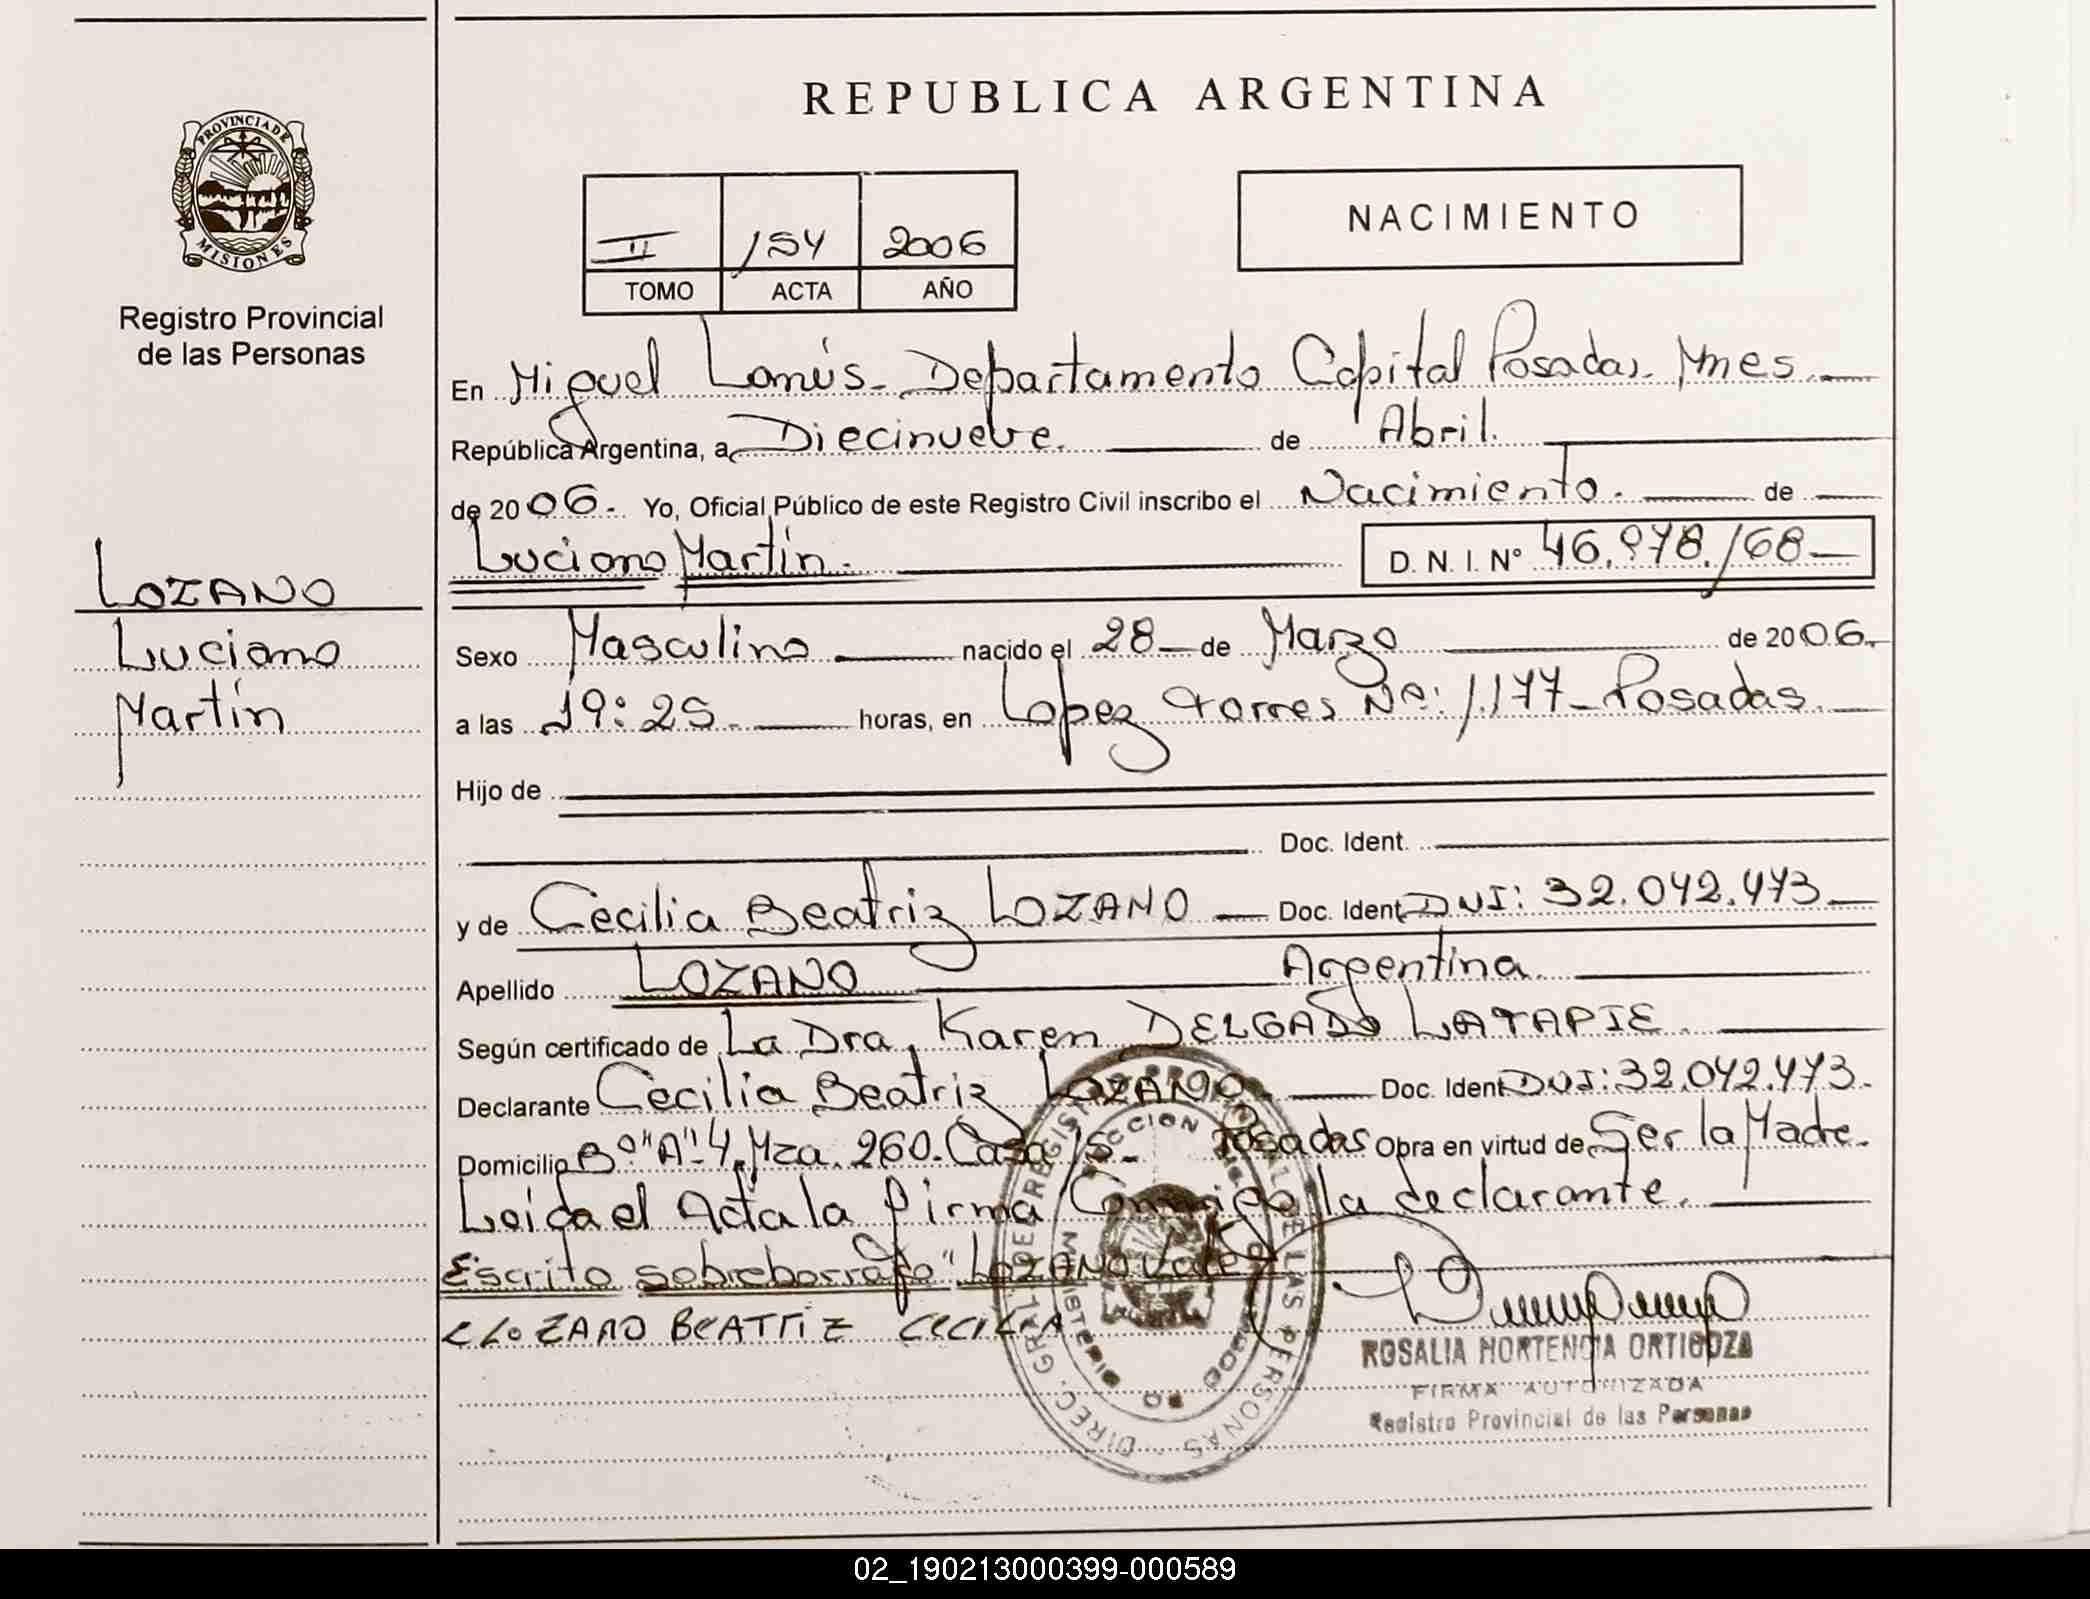 REPUBLICA ARGENTINA
PROVINCIA DE
MISIONES
Registro Provincial
de las Personas
NACIMIENTO
II 154 2006
TOMO ACTA AÑO
En Miguel Lanús. Departamento Capital Posadas. Mnes.
República Argentina, a Diecinueve. de Abril.
de 2006. Yo, Oficial Público de este Registro Civil inscribo el Nacimiento. de
Luciano Martín. D. N. I. Nº 46.978.168
LOZANO
Luciano
Martín
Sexo Masculino nacido el 28 de Marzo de 2006.
a las 19:25. horas, en Lopez Torres Nº: 1.177 - Posadas.
Hijo de
Doc. Ident.
y de Cecilia Beatriz LOZANO Doc. Ident. DNI: 32.042.473
Apellido LOZANO Argentina.
Según certificado de La Dra. Karen DELGADO LATAPIE.
Declarante Cecilia Beatriz LOZANO. Doc. Ident. DNI: 32.042.473.
Domicilio Bº "A"-4. Mza. 260. Casa 15. Posadas Obra en virtud de Ser la Madre.
Leida el Acta la firma Conmigo la declarante.
Escrito sobreborrado "LOZANO" Vale
LOZANO BEATRIZ CECILIA
DIREC. GRAL. DEL REGISTRO PROVINCIAL DE LAS PERSONAS
ROSALIA HORTENCIA ORTIGOZA
FIRMA AUTORIZADA
Registro Provincial de las Personas
02_190213000399-000589